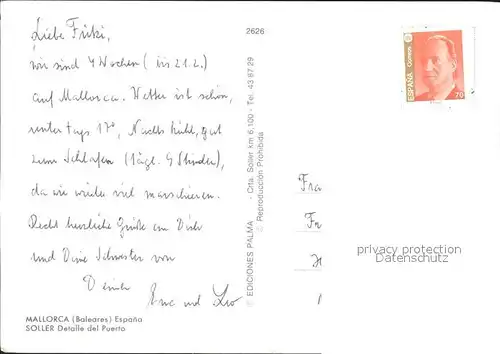 Liebe Fritzi,
wir sind 4 Wochen (bis 21.2.)
auf Mallorca. Wetter ist schön,
untertags 17°, Nachts kühl, gut
zum Schlafen (tägl. 9 Stunden),
da wir wieder viel marschieren.
Recht herzliche Grüße an Dich
und Deine Schwester von
Deinen
und Leo
MALLORCA (Baleares) España
SOLLER Detalle del Puerto
2626
© EDICIONES PALMA - Crta. Soller km 6,100 - Tel. 43 87 29
© Reproducción Prohibida
ESPAÑA Correos
70
Fra
Fr
privacy protection
Datenschutz